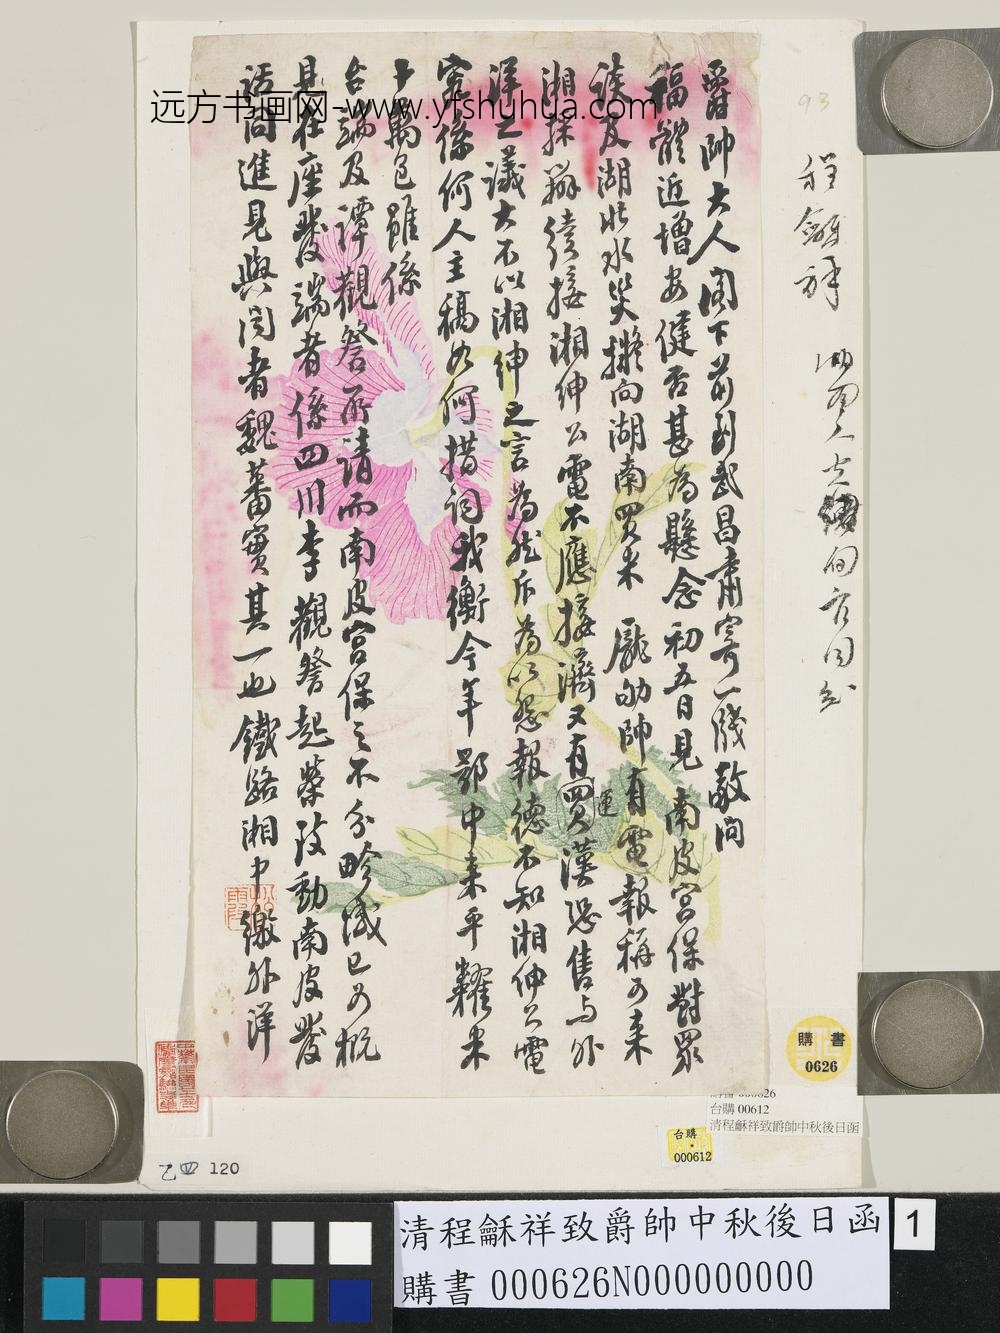 爵帥大人閣下前到武昌肅寄一牋敬問
福體近增安健否甚為懸念初五日見 南皮宮保對眾
談及湖北水災擬向湖南買米 龐劬帥有電報稱可來
湘採辦續接湘紳公電不應接濟又有買運漢恐售与外
洋之議大不以湘紳之言為然斥為以怨報德不知湘紳公電
寔係何人主稿如何措詞我衡今年鄂中來平糶米
十萬包雖係
台端及譚觀詧所請而南皮宮保之不分畛域已可概
見在座發端者係四川李觀詧起榮致動南皮發
話同進見與聞者魏蕃實其一也鐵路湘中繳外洋
远方书画网-www.yfshuhua.com
93
程龢祥
購書
0626
購書 000626
台購 00612
清程龢祥致爵帥中秋後日函
台購
000612
乙四 120
清程龢祥致爵帥中秋後日函
購書 000626N000000000
1